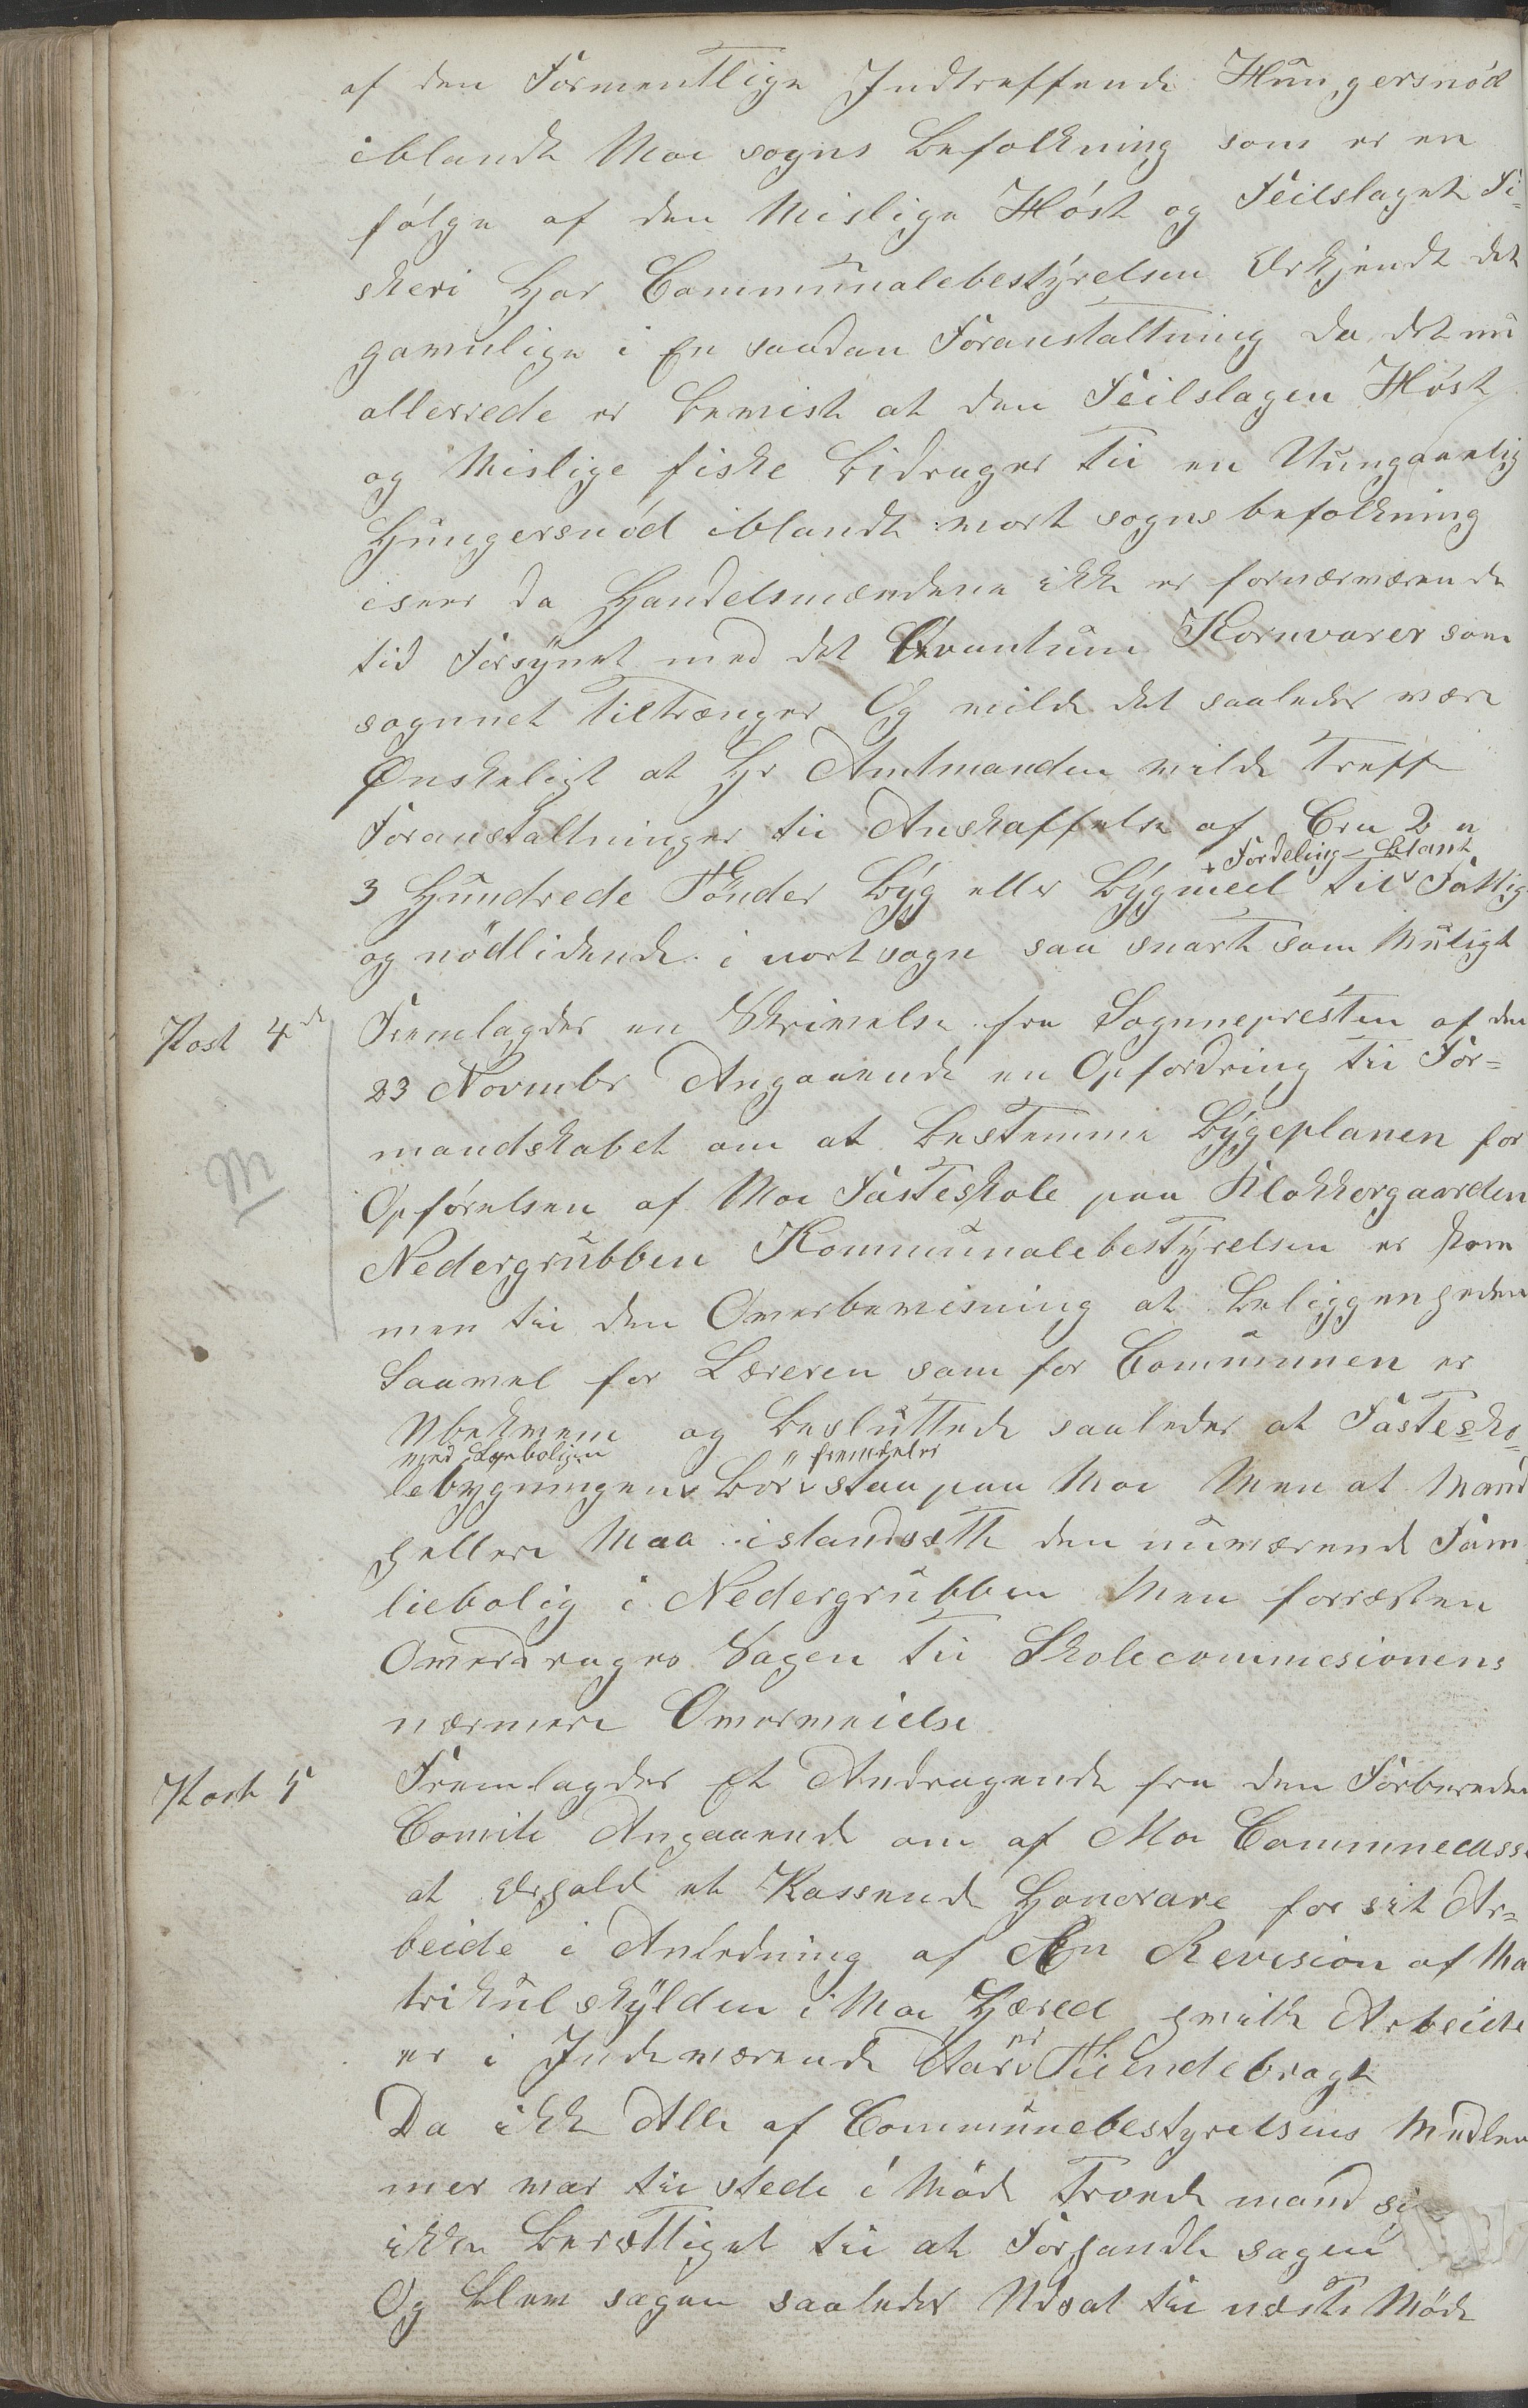 af den Formentlige Indtreffende Hungersnød
iblandt Moe sogns Befolkning som er en
følge af den Mislige Høst og Feilslaget Fi-
skeri Har Communalebestyrelsen Erkjendt det
gavnlige i En saadan Foranstaltning da det nu
allerrede er Bevist at den Feilslagen Høst
og Mislige fiske Bidrager til en Uungaaelig
Hungersnød iblandt vort sogns befolkning
iseer da Handelsmændene ikke er forværværende
tid Forsynet med det Qvantum Kornvarer som
sognnet Tiltrænger Og vilde det saaledes være
Ønskeligt at Hr Amtmanden vilde Treffe
Foranstaltninger til Anskaffelse af Cra 2 a
+ Fordeling Blant
3 Hundrede Tønder Byg eller Bygmeel til Fattig
og nødlidende i vort sogn saa snart som Muligt
Post 4de Fremlagdes en Skrivelse fra Sognnepresten af den
23 Novmbr Angaaende en Opfordring til For=
mandskabet om at Bestemme Bygeplanen for
Opførelsen af Moe Fasteskole paa Klokkergaarden
Nedergrubben Kommunalebestyrelsen er kom
men til den Overbevisning at Beliggenheden
Saavel for Læreren som for Communen er
Ubekvem og Besluttede saaledes at Fastesko=
med Lærebolig " fremdeles
lebygningen Bør staa paa Moe Men at Mand
hellere Maa istandsætte den nuværende Fam
liebolig i Nedergrubben Men forresten
Overdrages Sagen til Skolecommesionens
nærmere Overveielse
Post 5 Fremlagdes Et Andragende fra den Forbereden
Comite Angaaende om af Moe Communecasse
at Erholde et Passende Honorare for sit Ar=
beide i Anledning af En Revision af Ma
trikulskylden i Moe Hæred hvilke Arbeide
er
er i Indeværende Aar Tilendebragt
Da ikke Alle af Communebestyrelsens Medlem
mer var til stede i Møde Troede mand sig
ikke Berettiget til at Forhandle sagen
Og Blev sagen saaledes Udsat til næste Møde